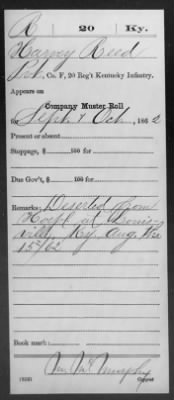 R 20 Ky.
Harvey Reed
Pvt, Co. F, 20 Reg't Kentucky Infantry.
Appears on
Company Muster Roll
for Sept & Oct, 1862
Present or absent
Stoppage, $ 100 for
Due Gov't, $ 100 for
Remarks: Deserted from
Hospl at Louis
ville Ky. Aug. the
15th/62
Book mark:
Murphy
Copyist.